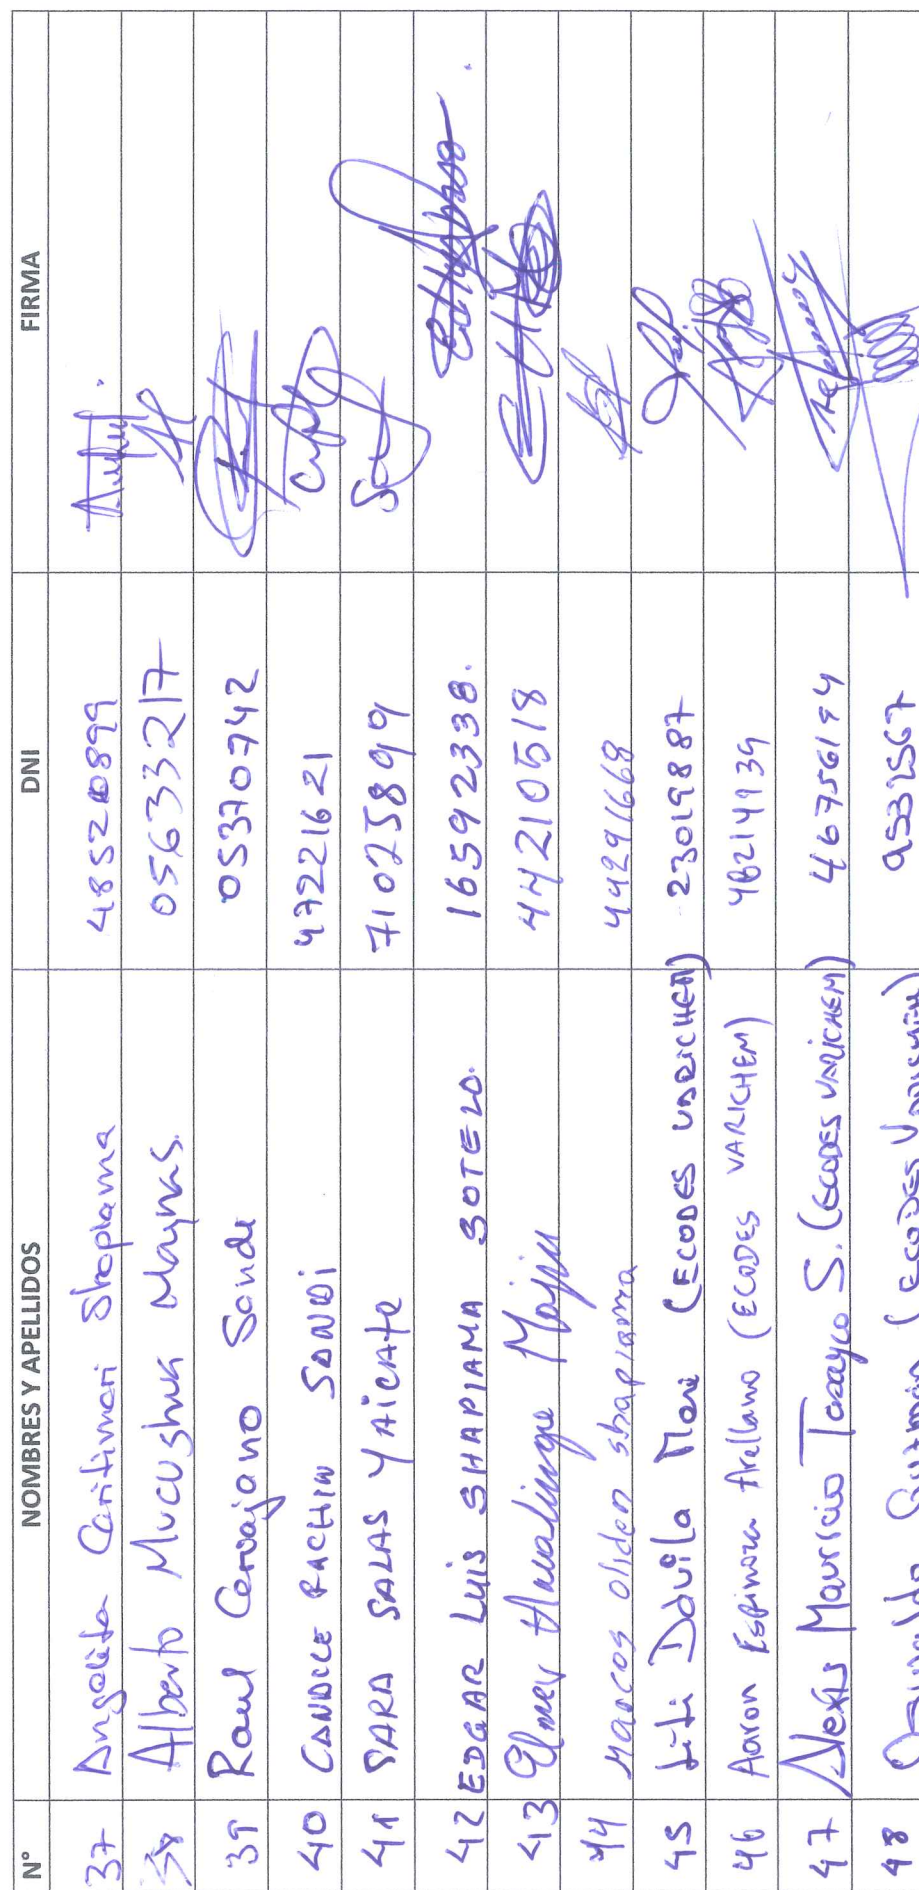 N° NOMBRES Y APELLIDOS DNI FIRMA
37 Angelita Caritimari Shapiama
38 Alberto Mucushua Maynas. 05633217
39 Raul Carvajano Sandi 05370742
40 CANDICE PACHIN SANDI 47221621
41 SARA SALAS YAICATE 71025899
42 EDGAR LUIS SHAPIAMA SOTELO. 16592338.
43 Elmer Huaʼlinga Majin 44210518
44 Marcos oliden shapiama 44291668
45 Liti Dávila Mori (ECODES VARICHEM) 23019887
46 Aaron Espinoza Arellano (ECODES VARICHEM)
47 Alexis Mauricio Tasayco S. (ECODES VARICHEM) 46756194
48 Guzmán (ECODES VARICHEM) 9532567